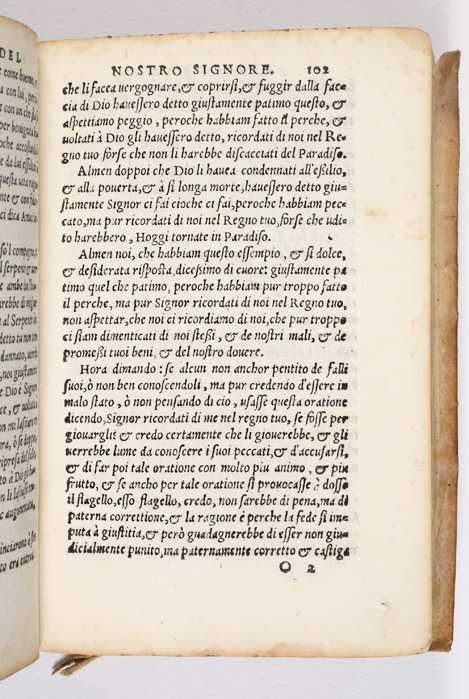 NOSTRO SIGNORE. 102
che li facea vergognare, & coprirsi, & fuggir dalla fac=
cia di Dio havessero detto giustamente patimo questo, &
aspettiamo peggio, peroche habbiam fatto il perche, &
voltati à Dio gli havessero detto, ricordati di noi nel Re=
gno tuo forse che non li harebbe discacciati del Paradiso.
Almen doppoi che Dio li havea condennati all'essilio,
& alla povertà, & à sì longa morte, havessero detto giu=
stamente Signor ci fai cioche ci fai, peroche habbiam pec=
cato, ma pur ricordati di noi nel Regno tuo, forse che udi=
to harebbero, Hoggi tornate in Paradiso.
Almen noi, che habbiam questo essempio, & sì dolce,
& desiderata risposta, dicessimo di cuore: giustamente pa
timo quel che patimo, peroche habbiam pur troppo fatto
il perche, ma pur Signor ricordati di noi nel Regno tuo,
non aspettar, che noi ci ricordiamo di noi, che pur troppo
ci siam dimenticati di noi stessi, & de nostri mali, & de
promessi tuoi beni, & del nostro dovere.
Hora dimando: se alcun non anchor pentito de falli
suoi, ò non ben conoscendoli, ma pur credendo d'essere in
malo stato, ò non pensando di cio, usasse questa oratione
dicendo, Signor ricordati di me nel regno tuo, se fosse per
giovargli: & credo certamente che li gioverebbe, & gli
verrebbe lume da conoscere i suoi peccati, & d'accusarsi,
& di far poi tale oratione con molto piu animo, & piu
frutto, & se ancho per tale oratione si provocasse à dosso
il flagello, esso flagello, credo, non sarebbe di pena, ma di
paterna correttione, & la ragione è perche la fede si im=
puta à giustitia, & però guadagnerebbe di esser non giu=
dicialmente punito, ma paternamente corretto & castiga
O 2